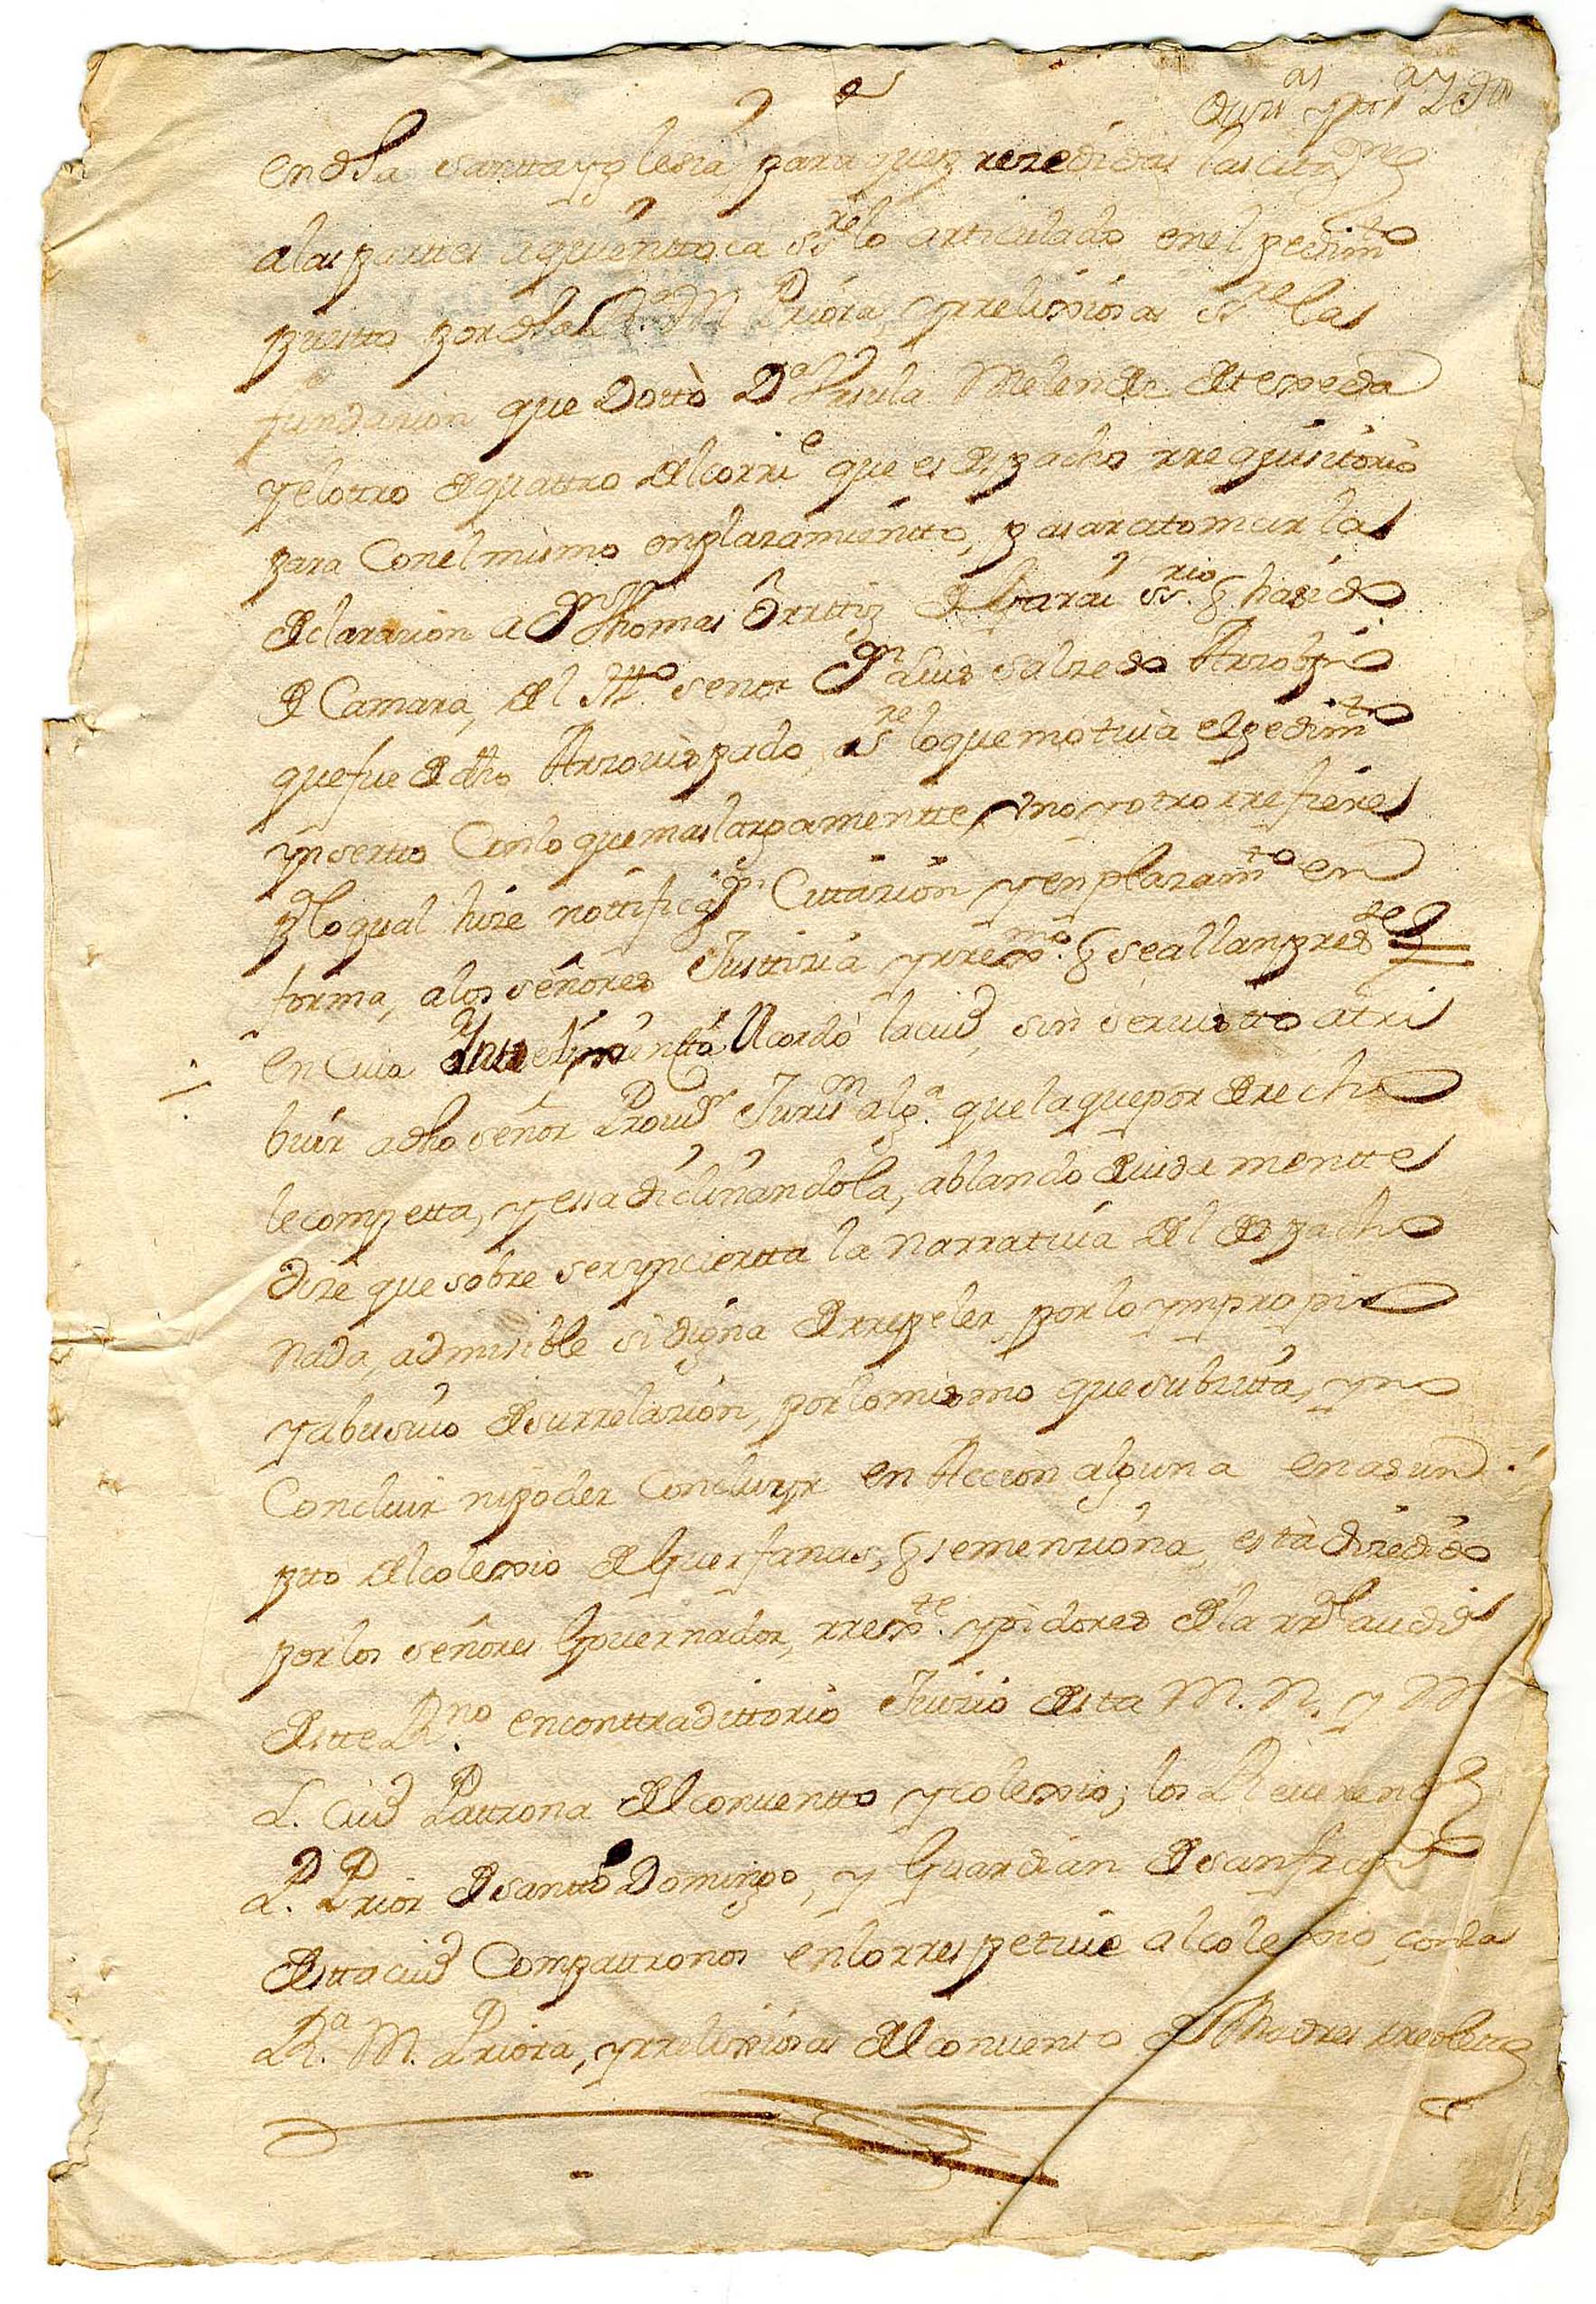 en dha santta yglesia, para que prezedidas las citaz.nes
a las parttes a quien ttoca ss.re lo articulado en el pedim.to
puestto por dha R.a M. Priora, y rrelixiosas ss.re las
fundazion que Dottò D.a Ursula Melendez de texeda
y el ottro de quattro del corri.e que es despacho rrequisitorio
para Con el mismo enplazamientto, pasar a tomar las
declarazion a Dn Thomas Orttiz de Garai ss.rio q ha sido
de Camara, del Ill.mo señor Dn Luis Salzedo Arzobpo
que fue de dho Arzovispado, ss.re lo que motiva el pedim.to
ynsertto Con lo que mas largamentte, uno y otro rrefiere
p.r lo qual hize nottificaz.n Cittazion y enplazam.to en
forma, a los señores Justtizia y rrex.mo q se allan pres.tes
en Cuia Inttelixenttia Acordò la ciud, sin ser visto atri
buir a dho señor Provis.r Juris.n alg.a que la que por derecho
le competta, y essa diclinandola, ablando devidamentte
dize que sobre ser yncierta la narrativa del despacho
nada, admisible si digna de rrepeler, por lo ympropio
y abusivo de su rrelazion, por lo mismo que subzita, y no
Concluir ni poder Concluyr en Accion alguna en asun
pto del colexio de Guerfanas, q se menziona, està dirixido
por los señores Governador, rrex.te y oidores de la rr.l audi.a
de stte R.no en conttradittorio Juizio desta M. N. y M.
L. Ciud Pattrona del conventto y colexio; los Reverendos
P. Prior de santto Domingo, y Guardian de san franco
de stta ciud Compattronos en lo rrespetivo al colexio, con las
R.a M. Priora, y rrelixiosas del convento de Madres